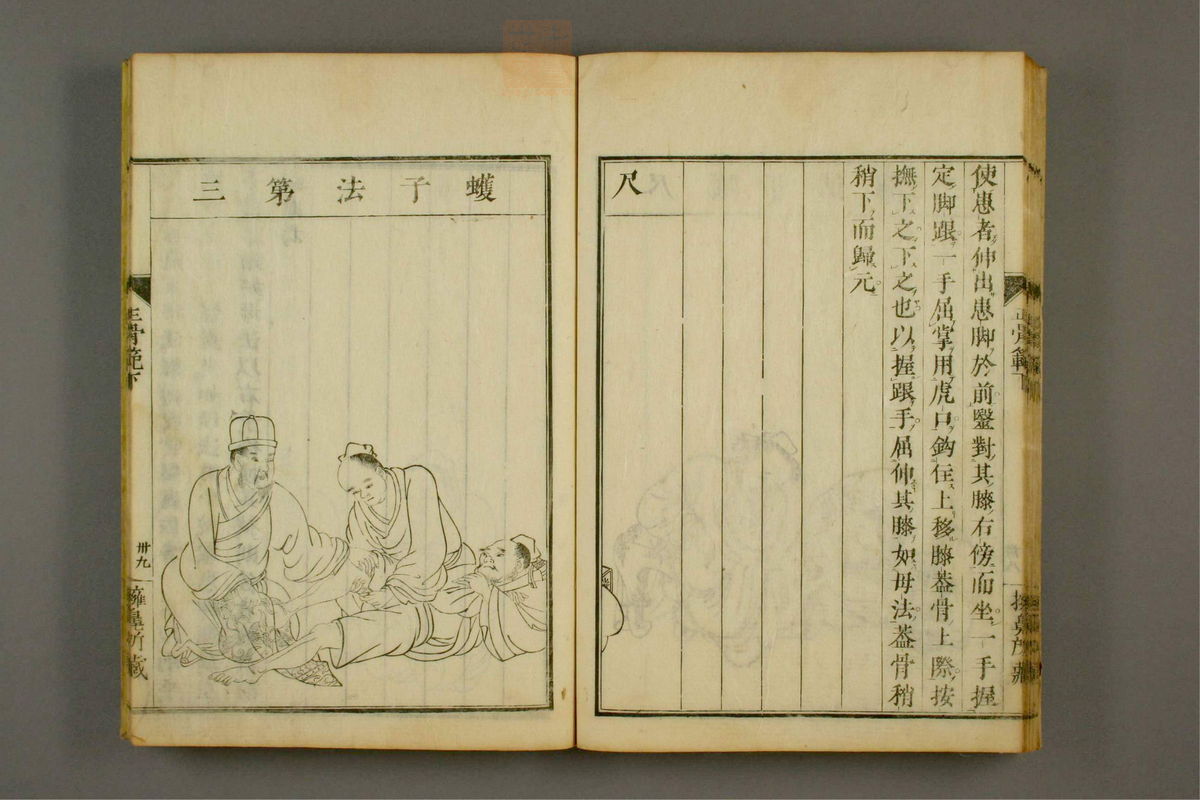 使患者伸出患脚於前毉對其膝右傍而坐一手握
定脚跟一手屈掌用虎口鈎住上移膝蓋骨上際按
撫下之下之也以握跟手屈伸其膝如母法蓋骨稍
稍下而歸元
尺
蠖子法第三
正骨範下
卅九